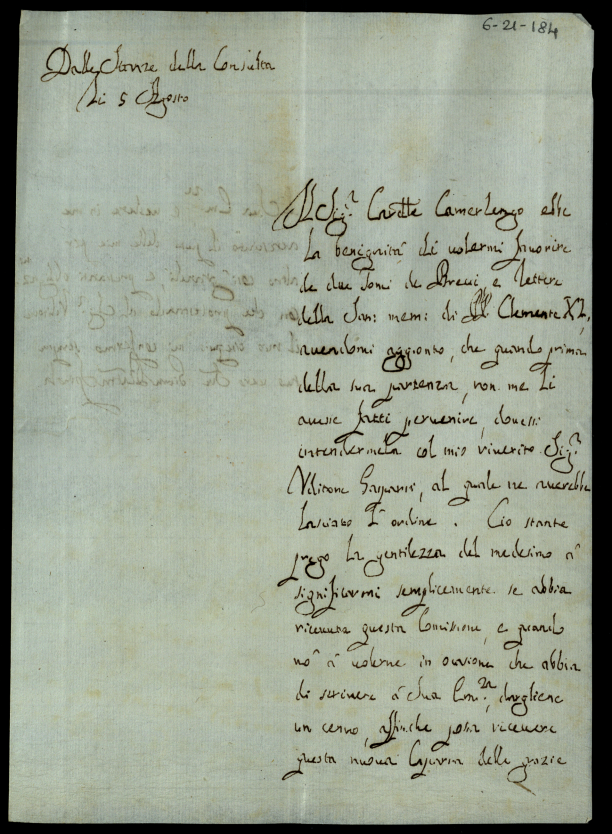 6-21-184
Dalle Stanze della Consulta
Li 5 Agosto
Il Sig.r Car.le Camerlengo ebbe
la benignità di volermi favorire
de due Tomi de Brevi e lettere
della San: mem: di Clemente XI,
avendomi aggionto, che quando prima
della sua partenza, non me li
avesse fatti pervenire, dovessi
intendermela col mio riverito Sig.r
Uditore Gasparri, al quale ne averebbe
lasciato l'ordine. Ciò stante
prego la gentilezza del medesimo à
significarmi semplicemente se abbia
ricevuta questa Comissione, e quando
nò à volerne in occasione che abbia
di scrivere à Sua Em.za, dargliene
un cenno, affinche possa ricevere
questa nuova Caparra delle grazie